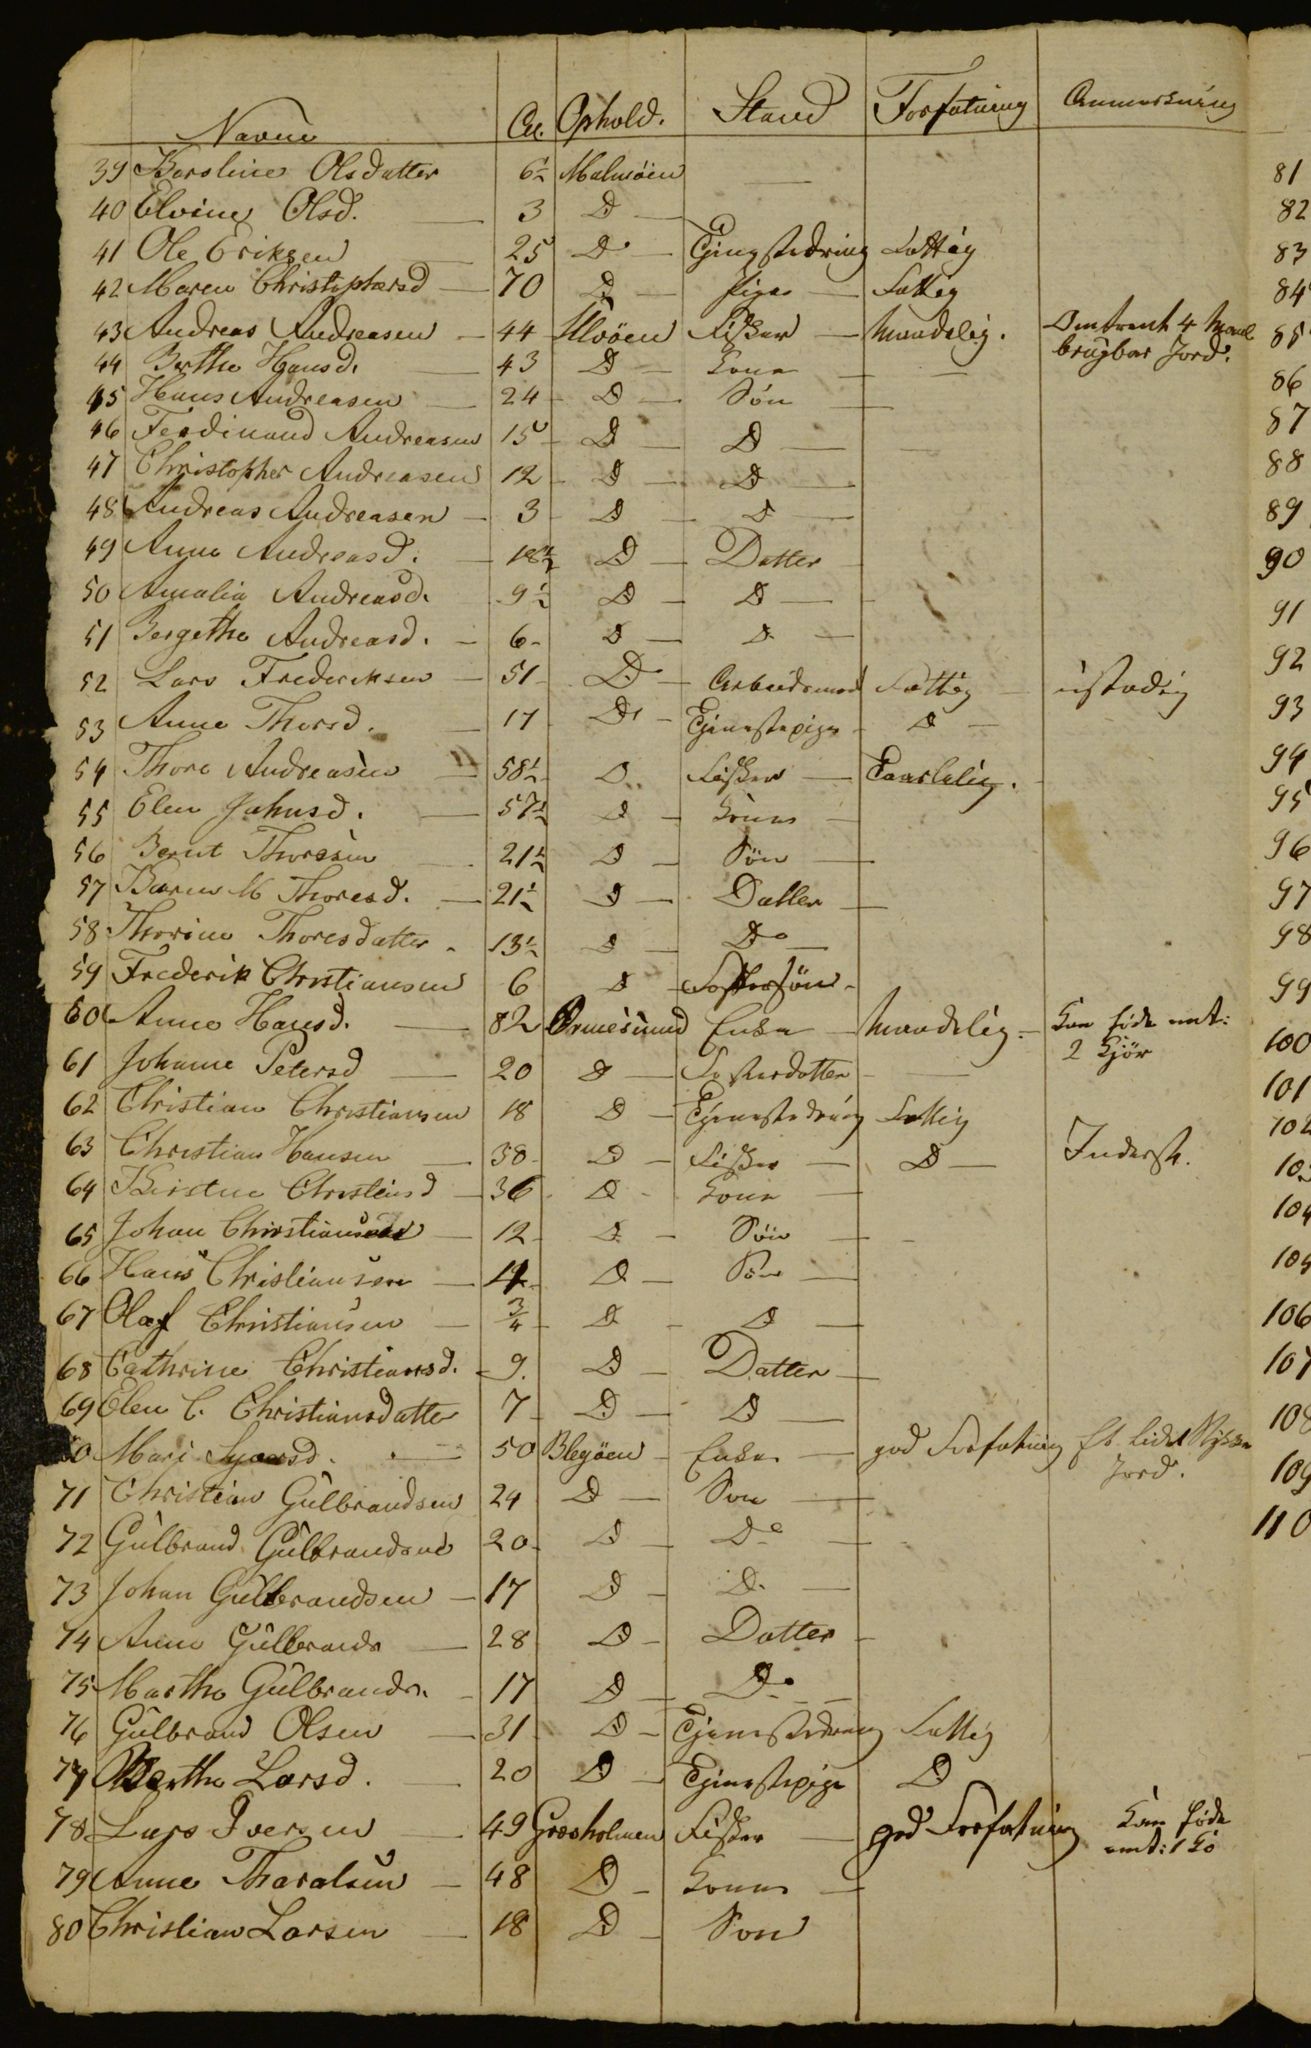 Navne Al. Ophold. Stand Forfatning Anmærkning
39 Karoline Olsdatter 6½ Malmöen —
40 Elvine Olsd. — 3 D —
41 Ole Eriksen — 25 Do — Tjenestedreng Fattig
42 Maren Christophersd — 70 D — Pige — Fattig
43 Andreas Andreasen — 44 Ulvöen Fisker — Maadelig. Omtrent 4 Maal
brugbar Jord.
44 Berthe Hansd. — 43 D — Kone —
45 Hans Andreasen — 24 D — Sön —
46 Ferdinand Andreasen 15 D — D —
47 Christopher Andreasen 12 D — D —
48 Andreas Andreasen — 3 D — D —
49 Anne Andreasd. — 18½ D — Datter —
50 Amalia Andreasd. 9½ D — D —
51 Bergethe Andreasd. — 6 D — D —
52 Lars Frederiksen — 51 Do Arbeidsmad Fattig — ustadig
53 Anne Thorsd. — 17 Do — Tjenestepige — D —
54 Thore Andreasen — 58½ D. Fisker — Taalelig.
55 Elen Johnsd. — 57½ D — Kone —
56 Bernt Thoresen — 21½ D — Sön —
57 Karen M Thoresd. — 21½ D — Datter —
58 Thorine Thoresdatter — 13½ D — Do —
59 Frederik Christiansen 6 D — Fostersön —
60 Anne Hansd. — 82 Ormesund Enke — Maadelig — Kan föde omt:
2 Kjör
61 Johanne Petersd — 20 D — Fosterdatter —
62 Christian Christiansen 18 D — Tjenestedreng Fattig
63 Christian Hansen — 38 D — Fisker — D — Inderst.
64 Kirstine Christensd — 36 D — Kone —
65 Johan Christiansen — 12 D — Sön —
66 Hans Christiansen — 4 D — Sön —
67 Olaf Christiansen — ¾ D — D —
68 Cathrine Christiansd. — 9. D — Datter —
69 Elen C. Christiansdatter 7 D — D —
0 Mari — 50 Blegöen Enke — god Forfatning Et lidet Stykke
Jord.
71 Christian Gulbrandsen 24 D — Son —
72 Gulbrand Gulbrandsen 20 D — Do —
73 Johan Gulbrandsen — 17 D — D. —
74 Anne Gulbrands — 28 D — Datter —
75 Marthe Gulbrands. — 17 D — Do —
76 Gulbrand Olsen — 31 D — Tjenestedreng Fattig
77 Berthe Larsd. — 20 D — Tjenestepige D
78 Lars Iversen — 49 Græsholmen Fisker — god Forfatning Kan föde
omt: 1 Ko
79 Anne — 48 D — Kone —
80 Christian Larsen — 18 D — Son
81
82
83
84
85
86
87
88
89
90
91
92
93
94
95
96
97
98
99
100
101
102
103
104
105
106
107
108
109
110